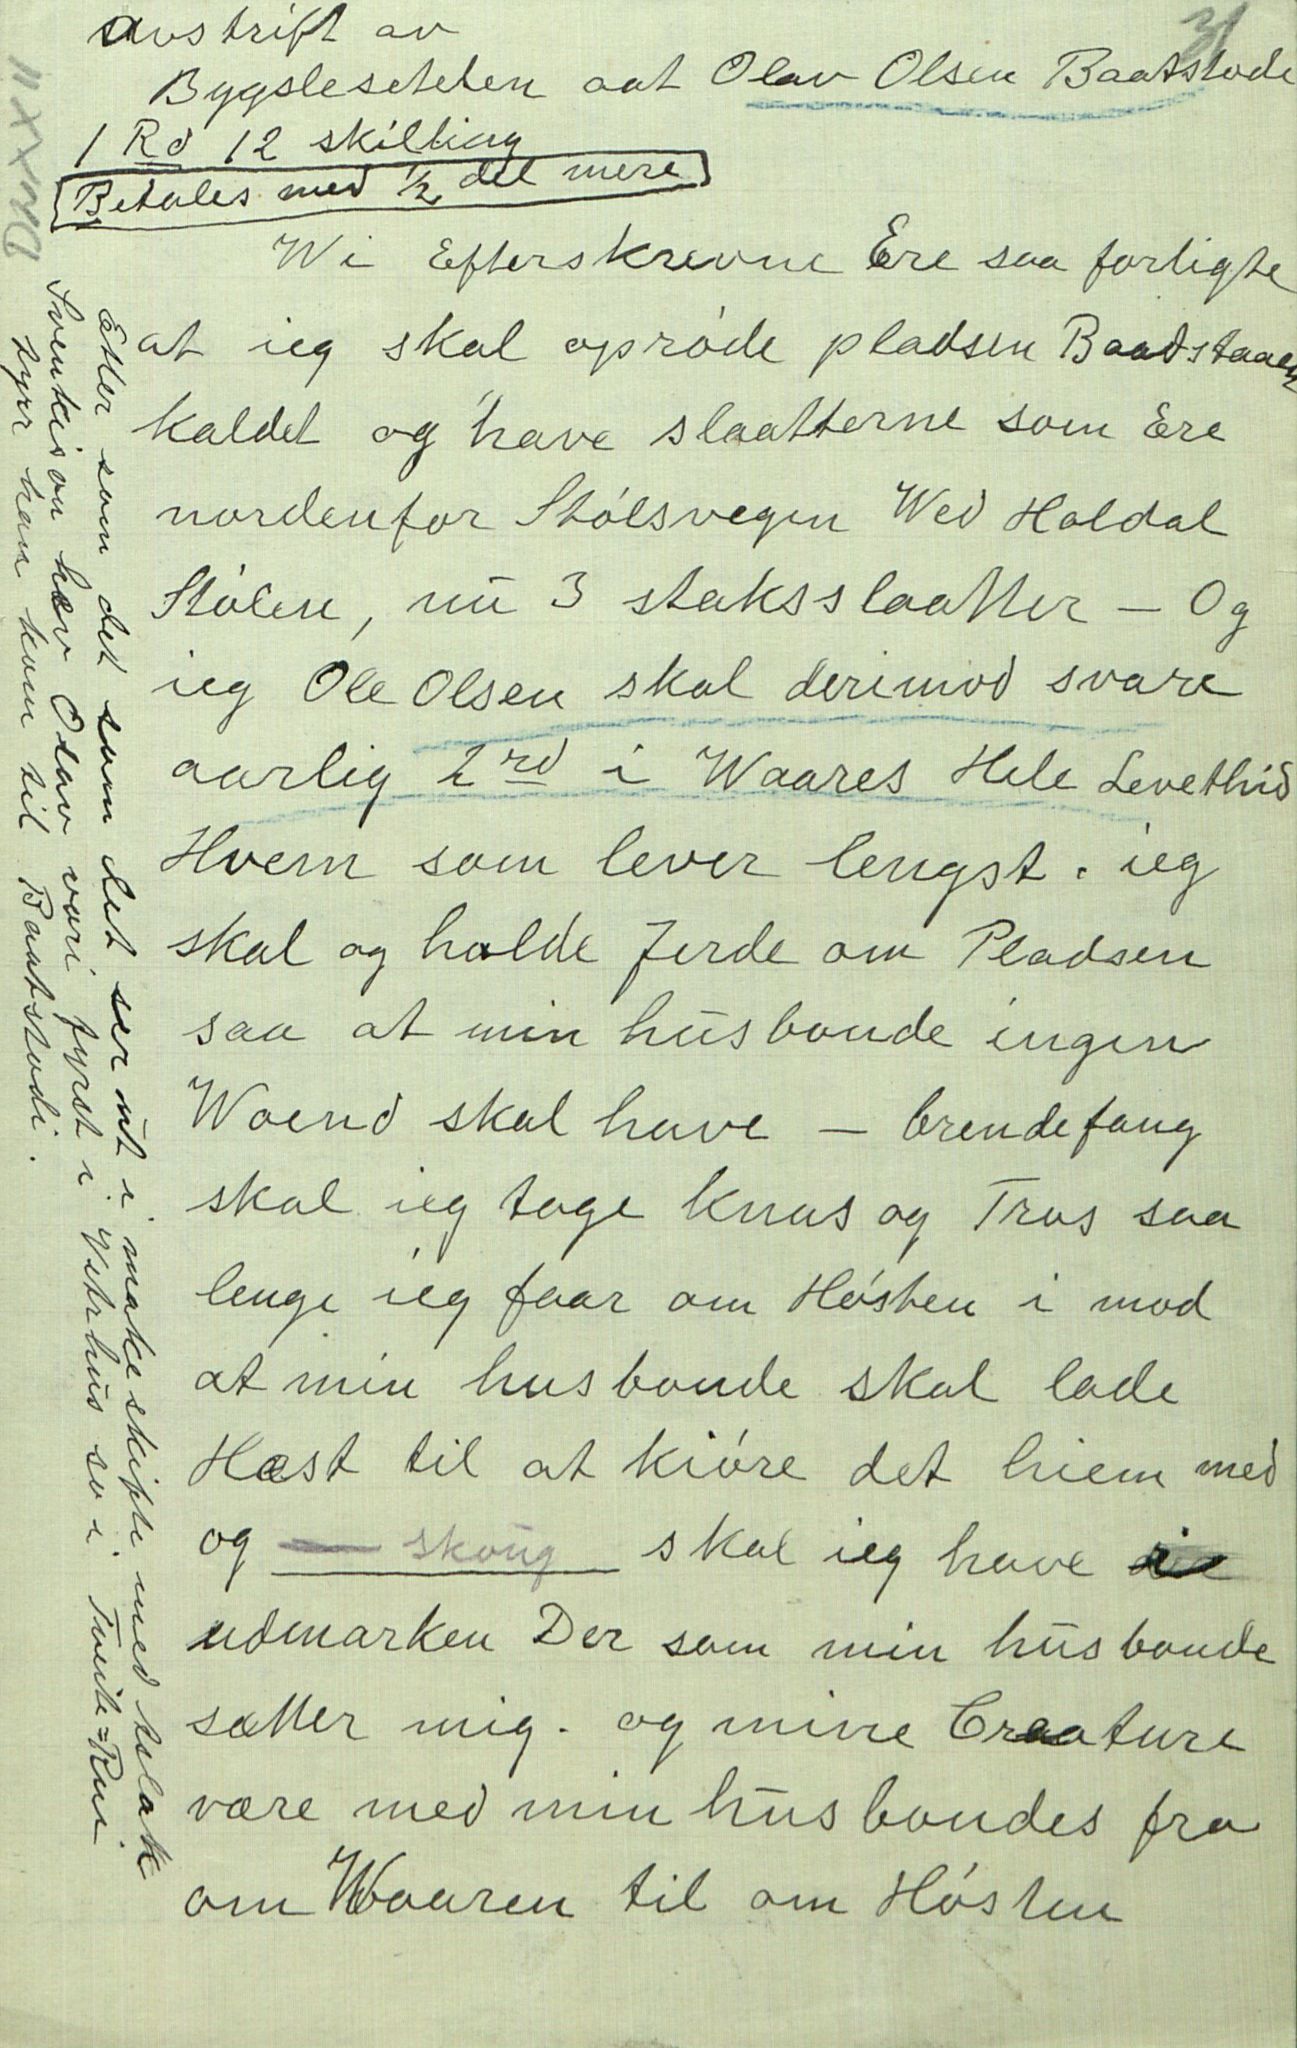 31
avskrift av
Bygslesetelen aat Olav Olsen Baatstode
1 Rd 12 skilling
Betales med 1/2 del mere
Wi Efterskrevne Ere saa forligte
at ieg skal oprøde pladsen Baadstaaen
kaldet og have slaatterne som Ere
nordenfor Stólsvegen Wed Haldal
Stólen, nu 3 staksslaatter — Og
ieg Ole Olsen skal derimod svare
aarlig 2 rd i Waares Hele Levethid
Hvem som lever lengst. ieg
skal og halde Jerde om Pladsen
saa at min husbonde ingen
Woend skal have — brendefang
skal ieg tage knus og Tras saa
lenge ieg faar om Hósten i mod
at min husbonde skal lade
Hæst til at kióre det hiem med
og skoug skal ieg have i
udmarken Der som min husbonde
sætter mig. og mine Creature
være med min husbondes fra
om Waaren til om Hósten
Etter som det som det ser ut i makeskifte med Aslak
Sveinkison hev Olav vori fyrst i Ytrhus so i Tveite=Rui
fyrr han kom til Baatstodi.